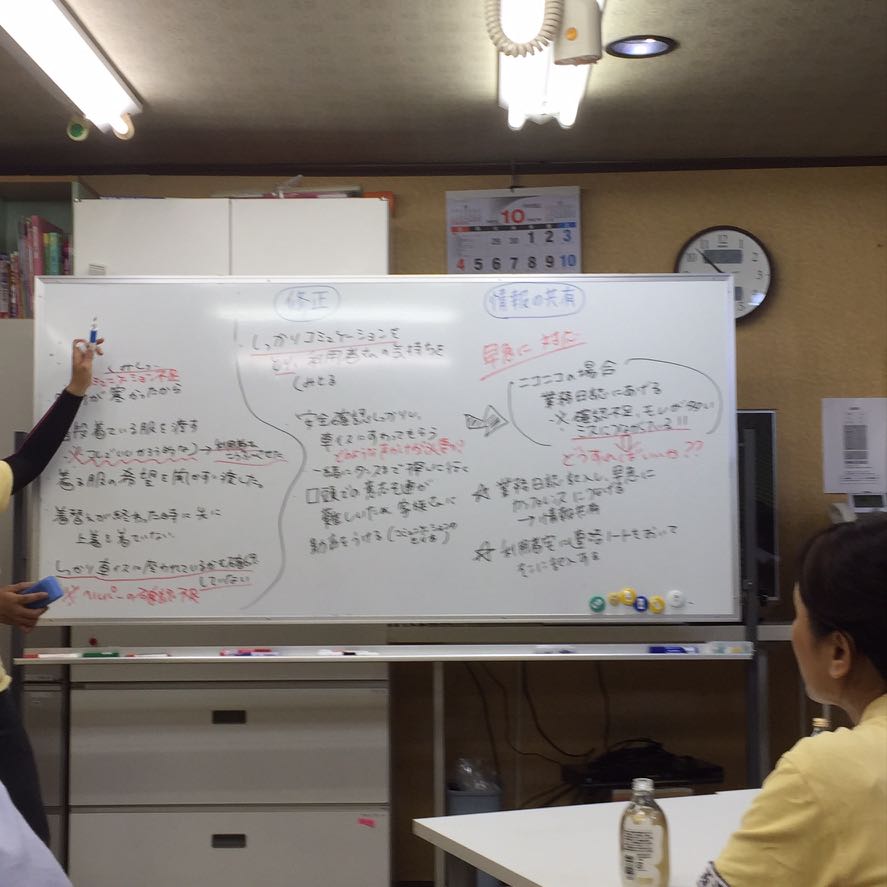 修正
しっかりコミュニケーションを
とり、利用者さんの気持ちを
くみとる
安全確認しっかり、
車イスにすわってもらう
どのような声かけが必要か?
一緒にタンスまで探しに行く
口頭での意志疎通が
難しいため家族さんに
助言をうける
情報の共有
早急に対応
ニコニコの場合
業務日誌にあげる
※確認不足、モレが多い
ミスにつながっている!!
どうすればいいか??
☆ 業務日誌記入し、早急に
カンファレンスにつなげる
→ 情報共有
☆ 利用者宅に連絡ノートをおいて
そこに記入する
コミュニケーション不足
が寒かったから
普段着ている服を渡す
着る服の希望を聞かずに渡した。
着替えが終わった時に先に
上着を着ていない
しっかり車イスに座れているかを確認
していない
※ ヘルパーの確認不足
10
29 30 1 2 3
4 5 6 7 8 9 10